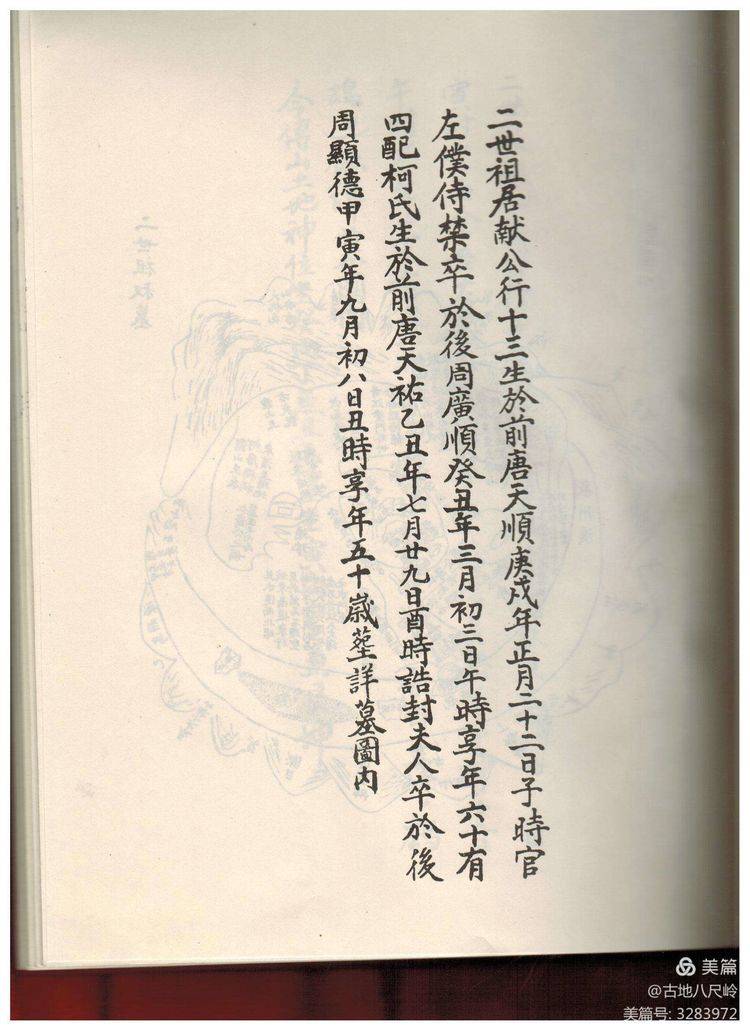 二世祖居献公行十三生於前唐天順庚戍年正月二十二日子時官
左僕侍禁卒於後周廣順癸丑年三月初三日午時享年六十有
四配柯氏生於前唐天祐乙丑年七月廿九日酉時誥封夫人卒於後
周顯德甲寅年九月初八日丑時享年五十歲塟詳墓圖内
美篇
@古地八尺岭
美篇号: 3283972